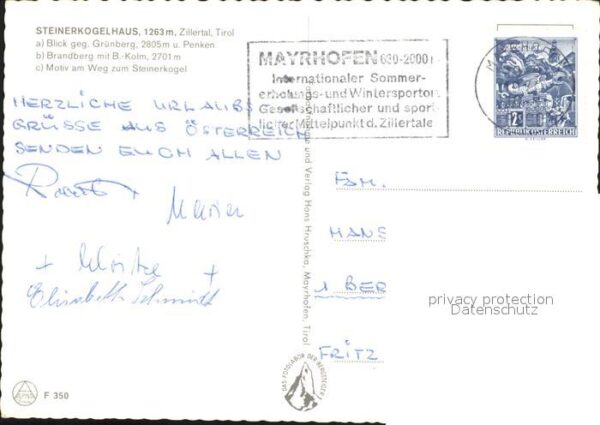 STEINERKOGELHAUS, 1263 m, Zillertal, Tirol
a) Blick geg. Grünberg, 2805 m u. Penken
b) Brandberg mit B.-Kolm, 2701 m
c) Motiv am Weg zum Steinerkogel
MAYRHOFEN 630-2000 m
Internationaler Sommer-
erholungs- und Wintersportort
Gesellschaftlicher und sport-
licher Mittelpunkt d. Zillertales
REPUBLIK ÖSTERREICH
HERZLICHE URLAUBS
GRÜSSE AUS ÖSTERREICH
SENDEN EUCH ALLEN
Elisabeth Schmidt
und Verlag Hans Hruschka, Mayrhofen, Tirol
FAM.
HANS
1 BER
FRITZ
privacy protection
Datenschutz
DAS FOTOLABOR DER BERGSTEIGER
F 350